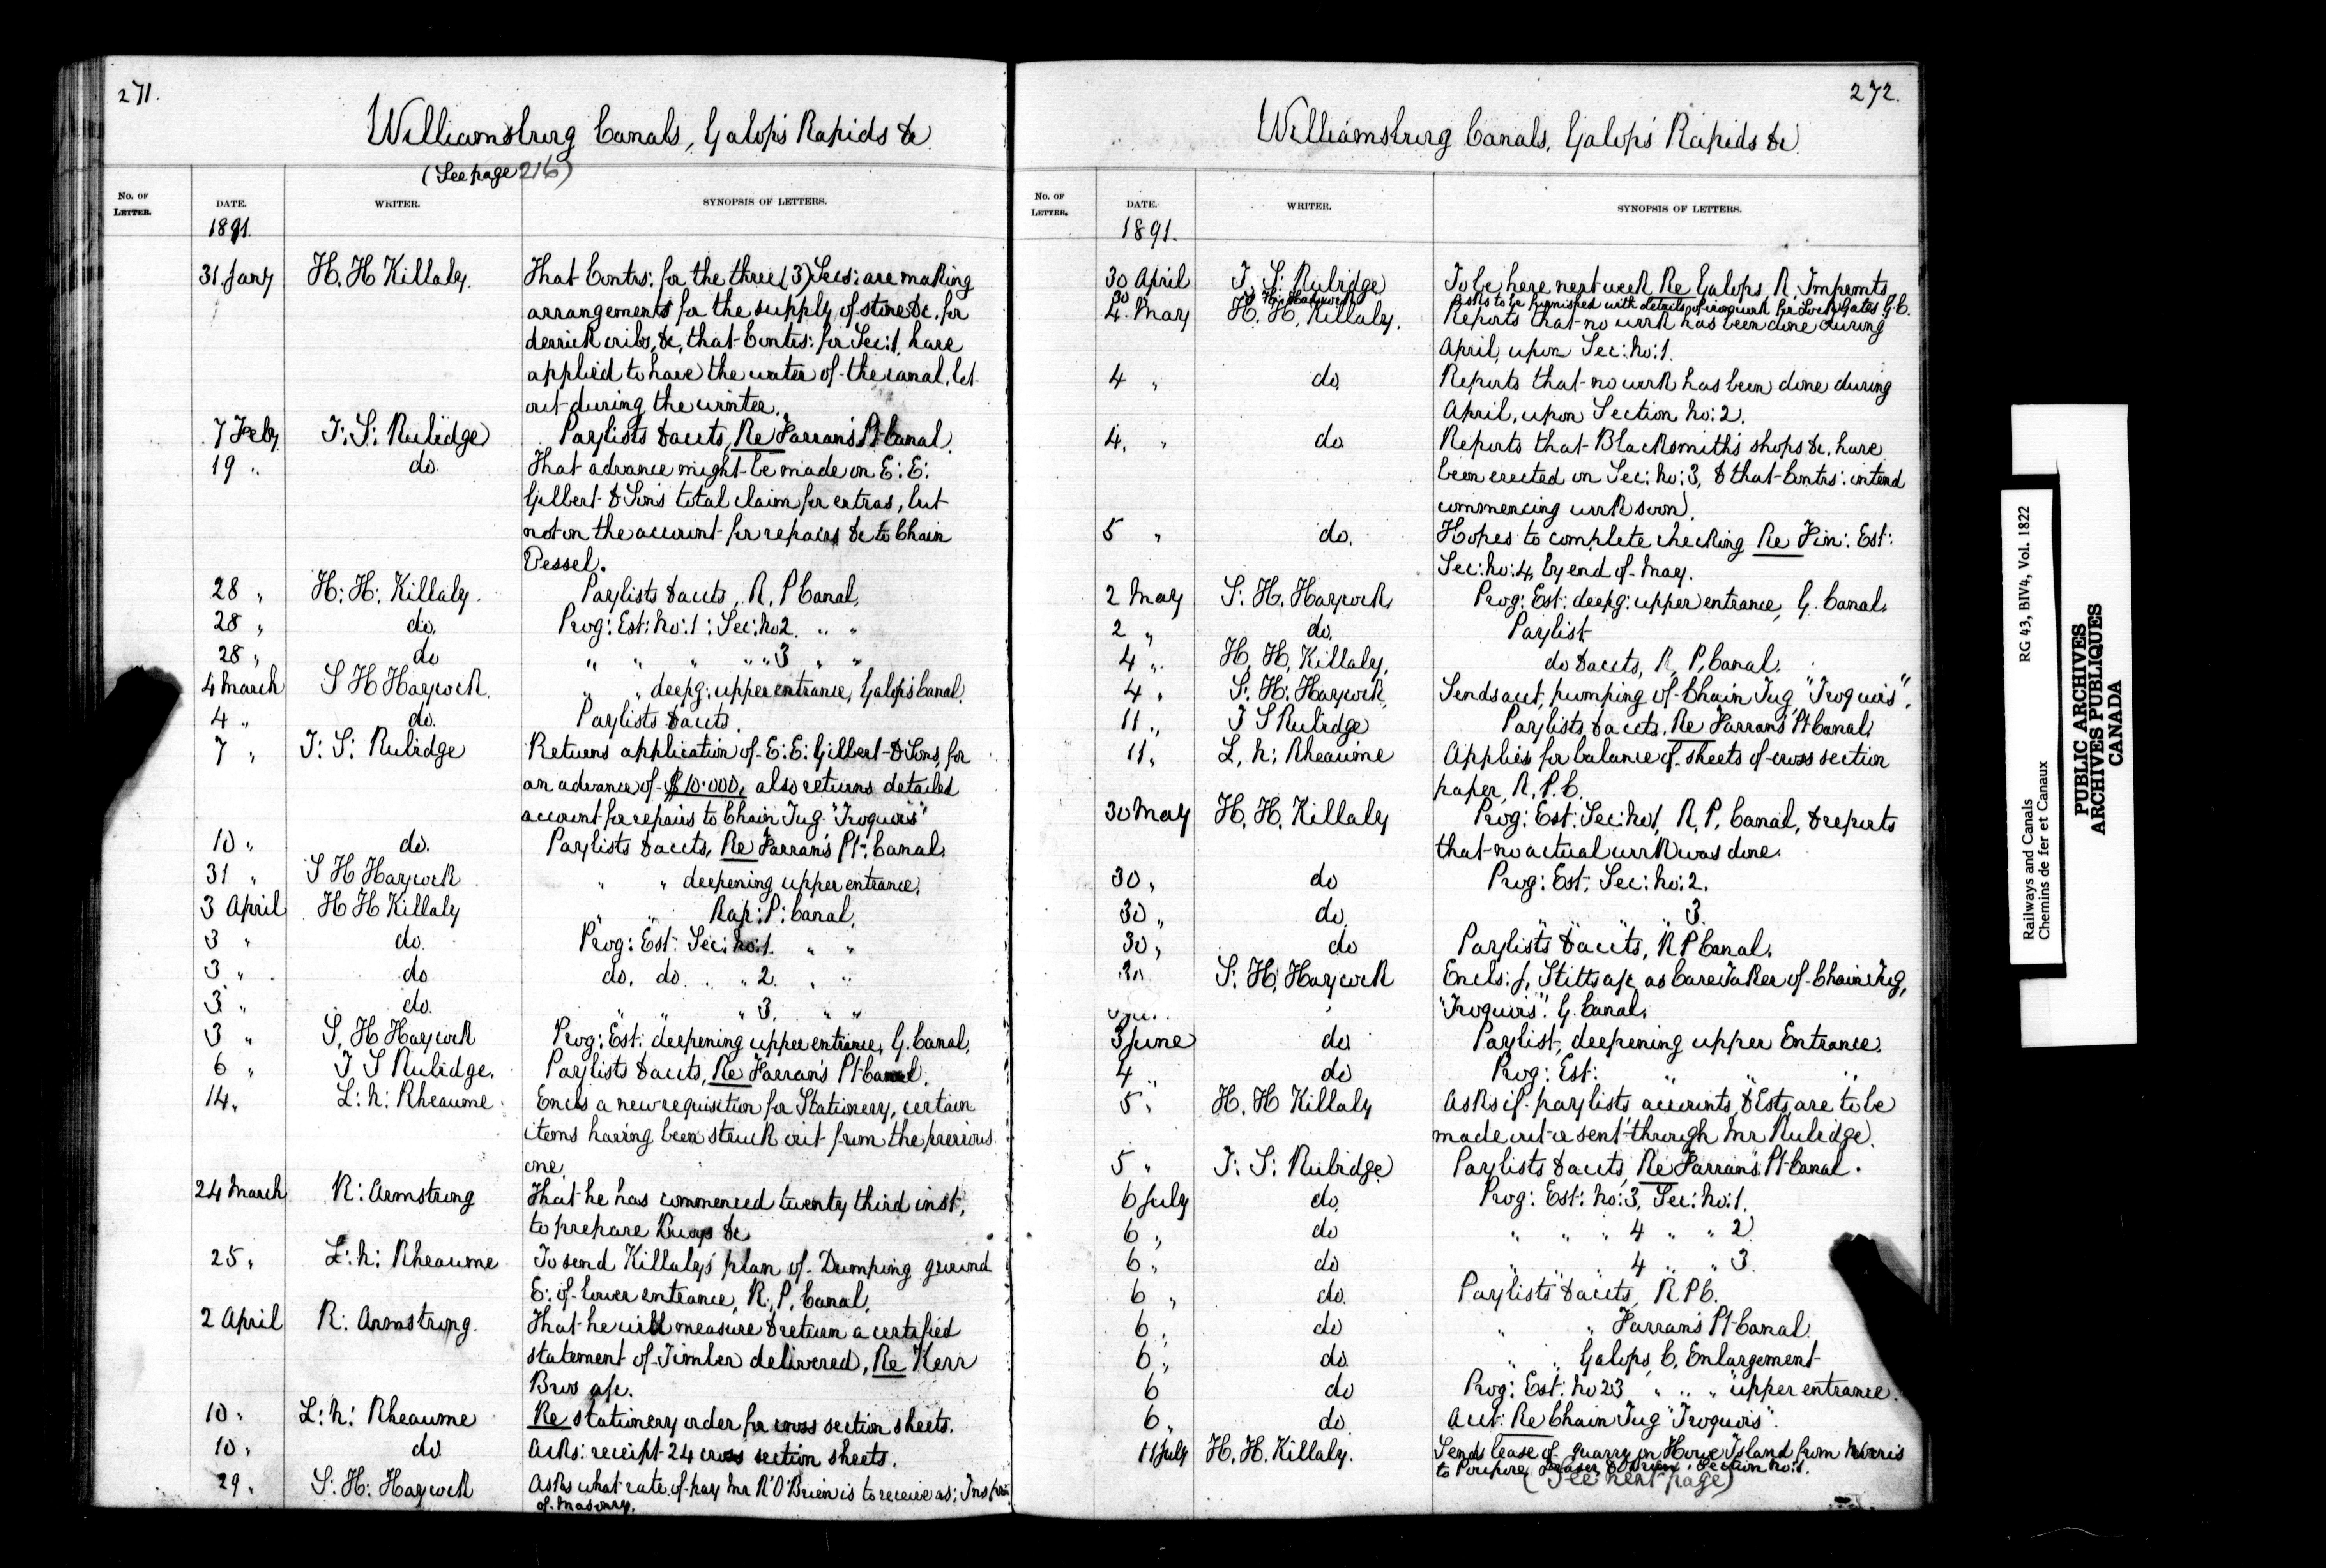 271.
Williamsburg Canals, Galops Rapids &c.
(See page 216)
No. OF LETTER. DATE. WRITER. SYNOPSIS OF LETTERS.
1891.
31 Jany H. H Killaly. That Contrs: for the three (3) Secs: are making
arrangements for the supply of stone &c. for
derrick cribs, &c, that Contrs: for Sec: 1, have
applied to have the water of the canal, let
out during the winter.
7 Feby T: S: Rubidge Paylists & accts, Re Farran's Pt Canal.
19 " do. That advance might be made on E: E:
Gilbert & Sons total claim for extras, but
not on the account for repairs &c to Chain
Vessel.
28 " H: H: Killaly. Paylists & accts, R. P Canal,
28 " do. Prog: Est: No: 1: Sec: No 2. " "
28 " do " " " " " 3 " "
4 March S H Haycock. " " deepg: upper entrance, Galops Canal.
4 " do. Paylists & accts.
7 " T: S: Rubidge Returns application of E: E: Gilbert & Sons, for
an advance of $10.000, also returns detailed
account for repairs to Chain Tug "Iroquois"
10 " do. Paylists & accts, Re Farran's Pt: Canal.
31 " S H Haycock " " deepening upper entrance.
3 April H H Killaly " " Rap: P: Canal,
3 " do. Prog: Est: Sec: No: 1. " "
3 " do do. do. " " 2. " "
3 " do. " " " 3. " "
3 " S, H Haycock Prog: Est: deepening upper entrance, G. Canal,
6 " T S Rubidge. Paylists & accts, Re Farran's Pt Canal.
14 " L: N: Rheaume. Encls a new requisition for Stationery, certain
items having been struck out from the previous
one.
24 March R: Armstrong That he has commenced twenty third inst,
to prepare Buoys &c
25 " L: N: Rheaume To send Killaly's plan of Dumping ground
E: of lower entrance, R. P. Canal.
2 April R: Armstrong. That he will measure & return a certified
statement of Timber delivered, Re Kerr
Bros a/c.
10 " L: N: Rheaume Re stationery order for cross section sheets.
10 " do Acks: receipt 24 cross section sheets.
29 " S: H: Haycock Asks what rate of pay Mr R' O'Brien is to receive as: Inspr:
of Masonry.
272.
Williamsburg Canals, Galops Rapids &c
No. OF LETTER. DATE. WRITER. SYNOPSIS OF LETTERS.
1891.
30 April T. S: Rubidge To be here next week Re Galops R. Improvmts
30 S. H. Haycock Asks to be furnished with details of ironwork for Lock Gates G.C.
4. May H. H. Killaly. Reports that no work has been done during
April, upon Sec: No: 1.
4 " do. Reports that no work has been done during
April, upon Section No: 2.
4. " do Reports that Blacksmith's shops &c. have
been erected on Sec: No: 3, & that Contrs: intend
commencing work soon.
5 " do. Hopes to complete checking Re Fin: Est:
Sec: No: 4, by end of May.
2 May S: H. Haycock, Prog: Est: deepg: upper entrance, G. Canal.
2 " do. Paylist
4 " H, H, Killaly, do & accts, R, P, Canal.
4 " S: H: Haycock, Sends acct, pumping of Chain Tug, "Iroquois".
11 " T S Rubidge Paylists, & accts, Re Farran's Pt Canal,
11 " L, N: Rheaume Applies for balance of sheets of cross section
paper, R. P. C.
30 May H. H. Killaly Prog: Est: Sec: No 1, R, P, Canal, & reports
that no actual work was done.
30 " do Prog: Est: Sec: No: 2.
30 " do " " " 3.
30 " do Paylists & accts, R P Canal.
30 S: H, Haycock Encls: J, Stitts a/c as CareTaker of Chain Tug,
"Iroquois". G. Canal.
3 June do. Paylist, deepening upper Entrance.
4 " do Prog: Est: " " "
5 " H. H Killaly Asks if paylists, accounts, & Ests, are to be
made out & sent through Mr Rubidge.
5 " T: S: Rubidge Paylists & accts, Re Farran's Pt Canal.
6 July do. Prog: Est: No: 3, Sec: No: 1.
6 " do " " " 4 " " 2
6 " do " " " 4 " " 3.
6 " do. Paylists & accts, R P C.
6 " do " " Farran's Pt Canal.
6 " do. " " Galops C, Enlargement
6 do Prog: Est: No 23 " " " upper entrance.
6 " do. Acct: Re Chain Tug "Iroquois".
11 July H. H. Killaly. Sends lease of quarry on Howe Island from Norris
to Poupore, Fraser & O'Brien, Section No: 1.
(See next page)
Railways and Canals RG 43, BIV4, Vol. 1822
Chemins de fer et Canaux
PUBLIC ARCHIVES
ARCHIVES PUBLIQUES
CANADA